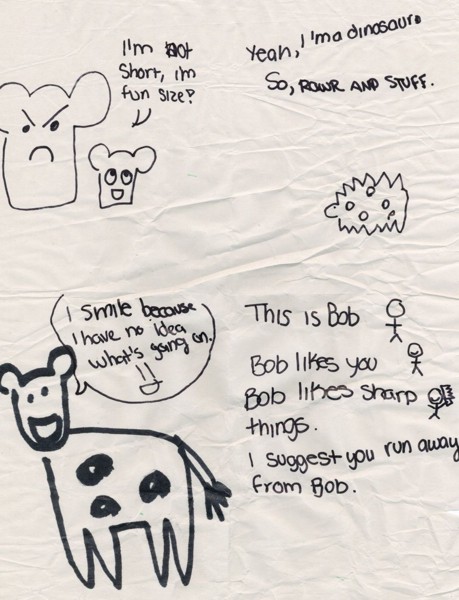 I'm not
Short, im
fun size?
Yeah, I'm a dinosaur.
So, ROWR AND STUFF.
I smile because
I have no idea
what's going on.
This is Bob
Bob likes you
Bob likes sharp
things.
I suggest you run away
from Bob.